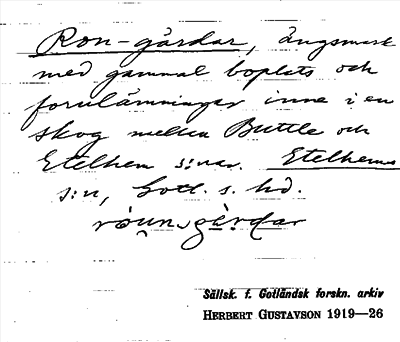 Ron-gårdar, ängsmark
med gammal boplats och
fornlämningar inne i en
skog mellan Buttle och
Etelhem s:nar. Etelhems
s:n, Gotl. s. hd.
róunₒgàrdar
Sällsk. f. Gotländsk forskn. arkiv
HERBERT GUSTAVSON 1919—26